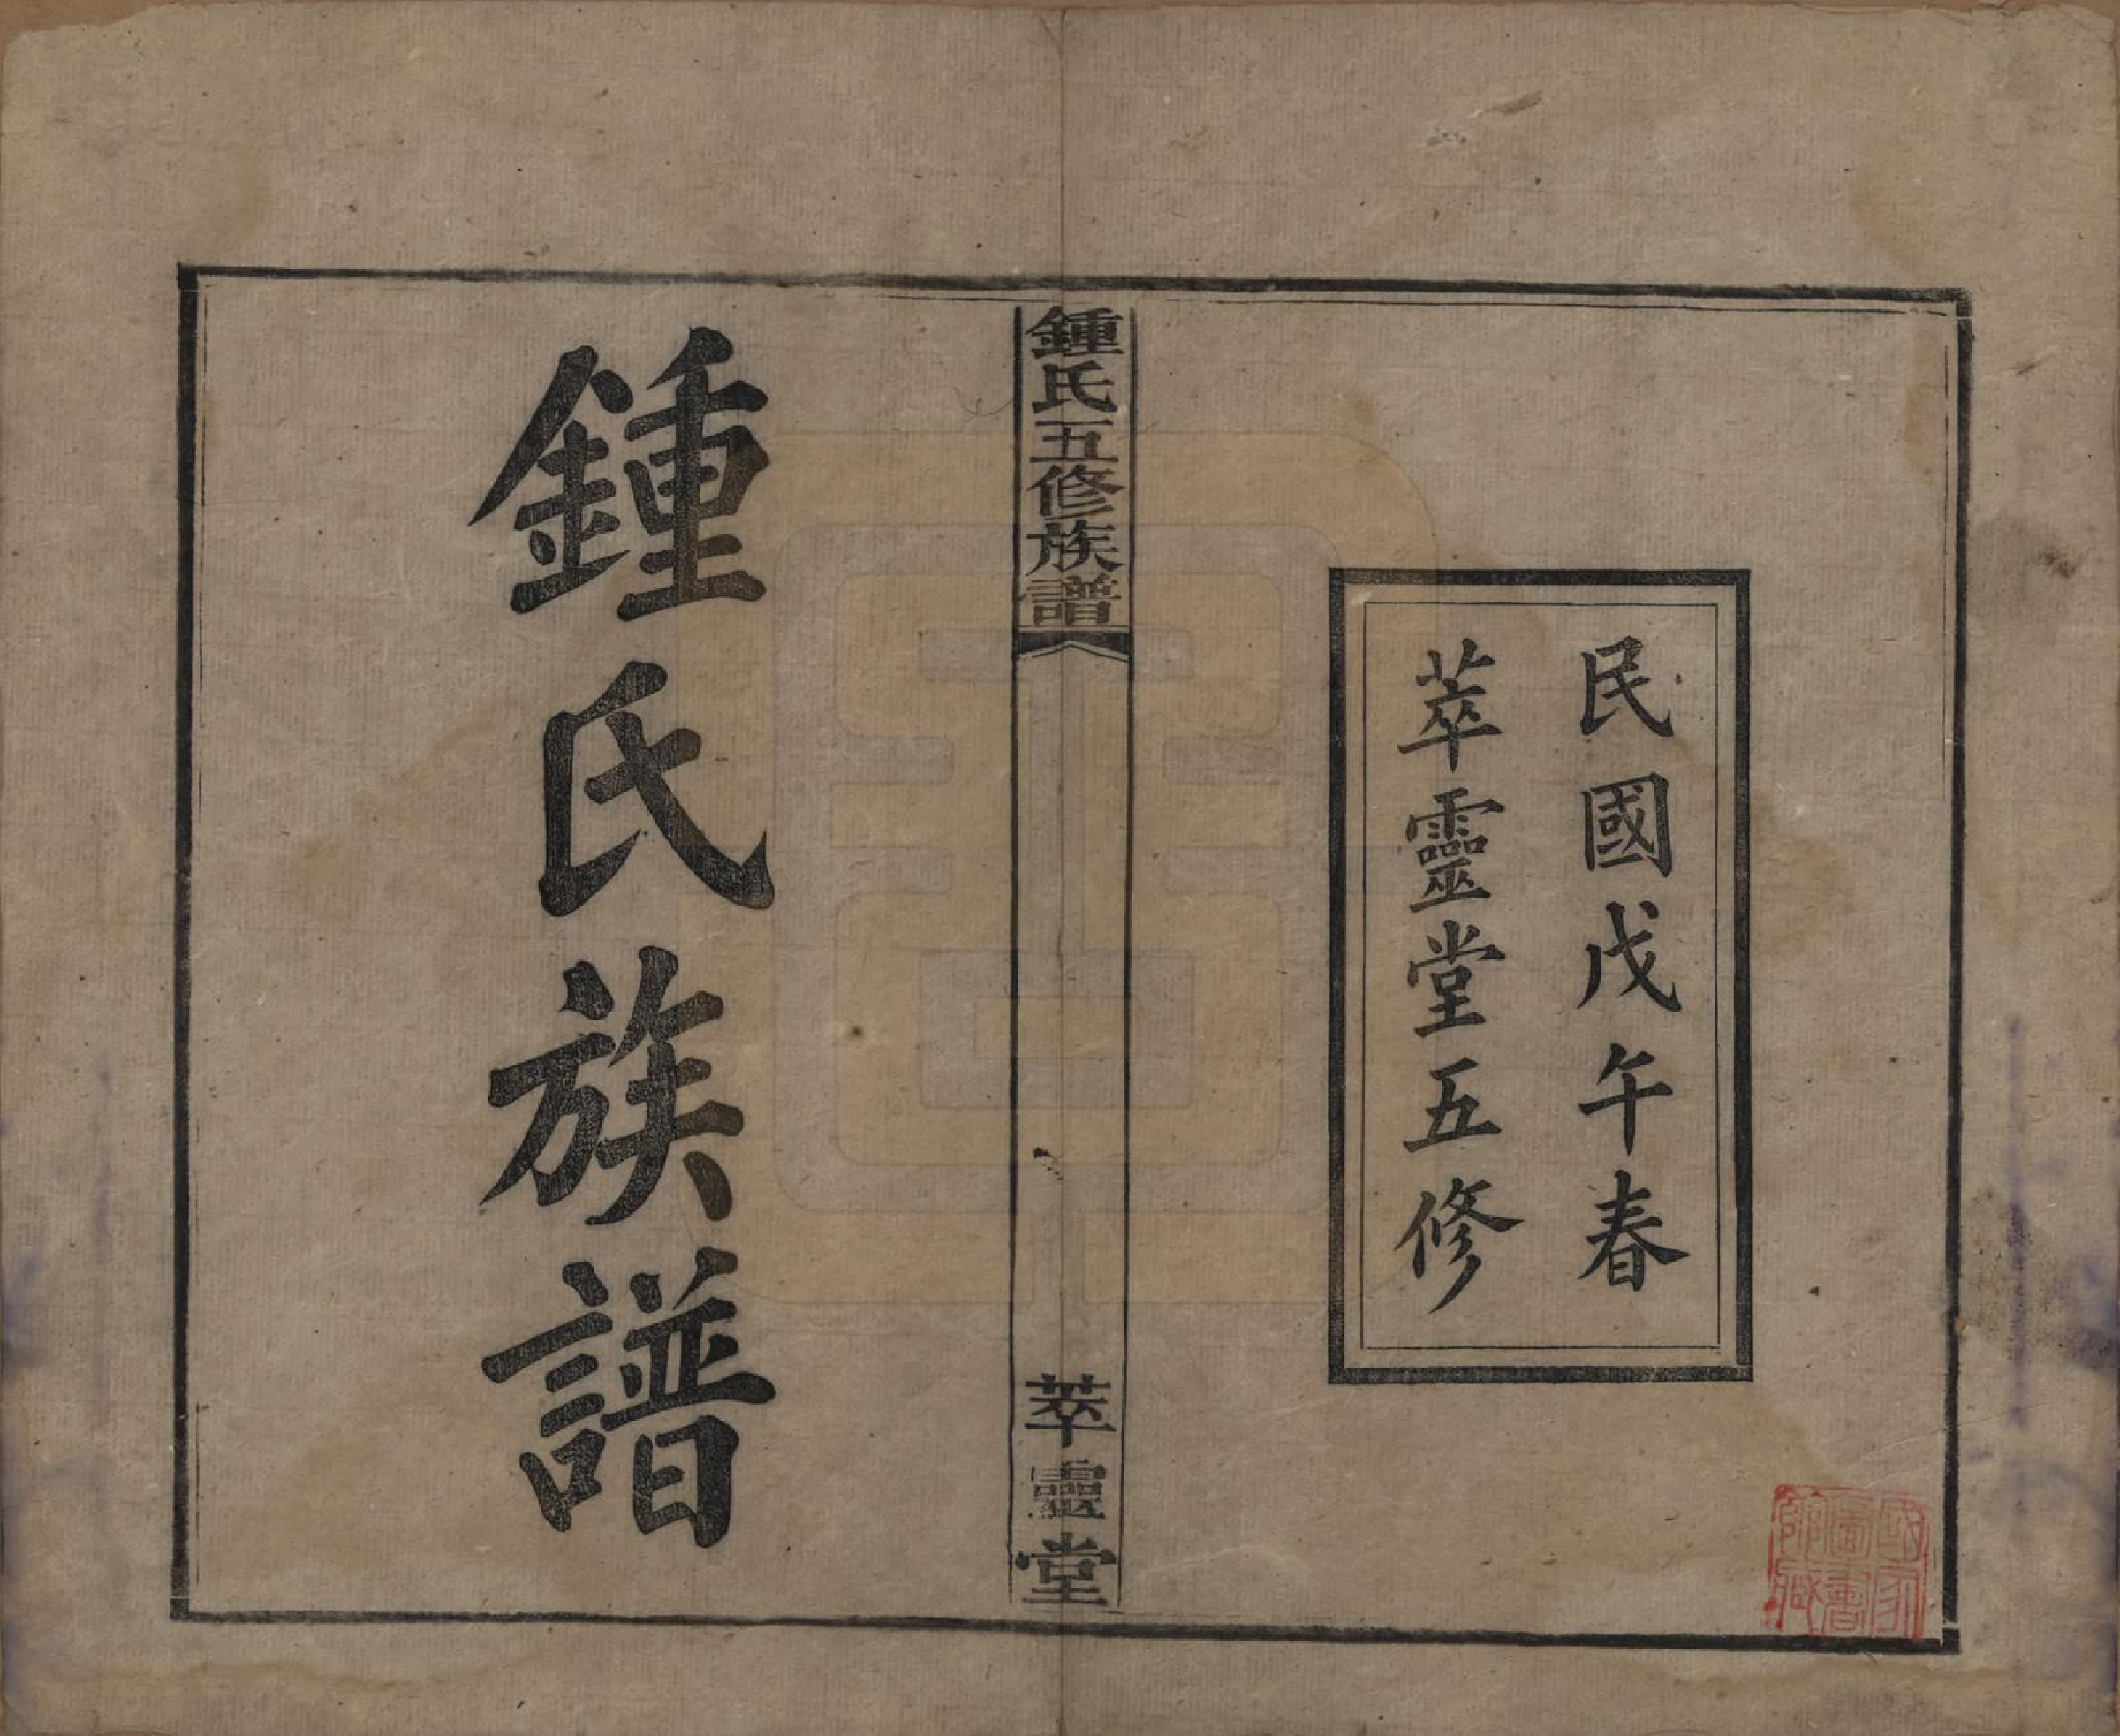 民國戊午春
萃靈堂五修
鍾氏五修族譜
萃靈堂
鍾氏族譜
國家圖書館藏